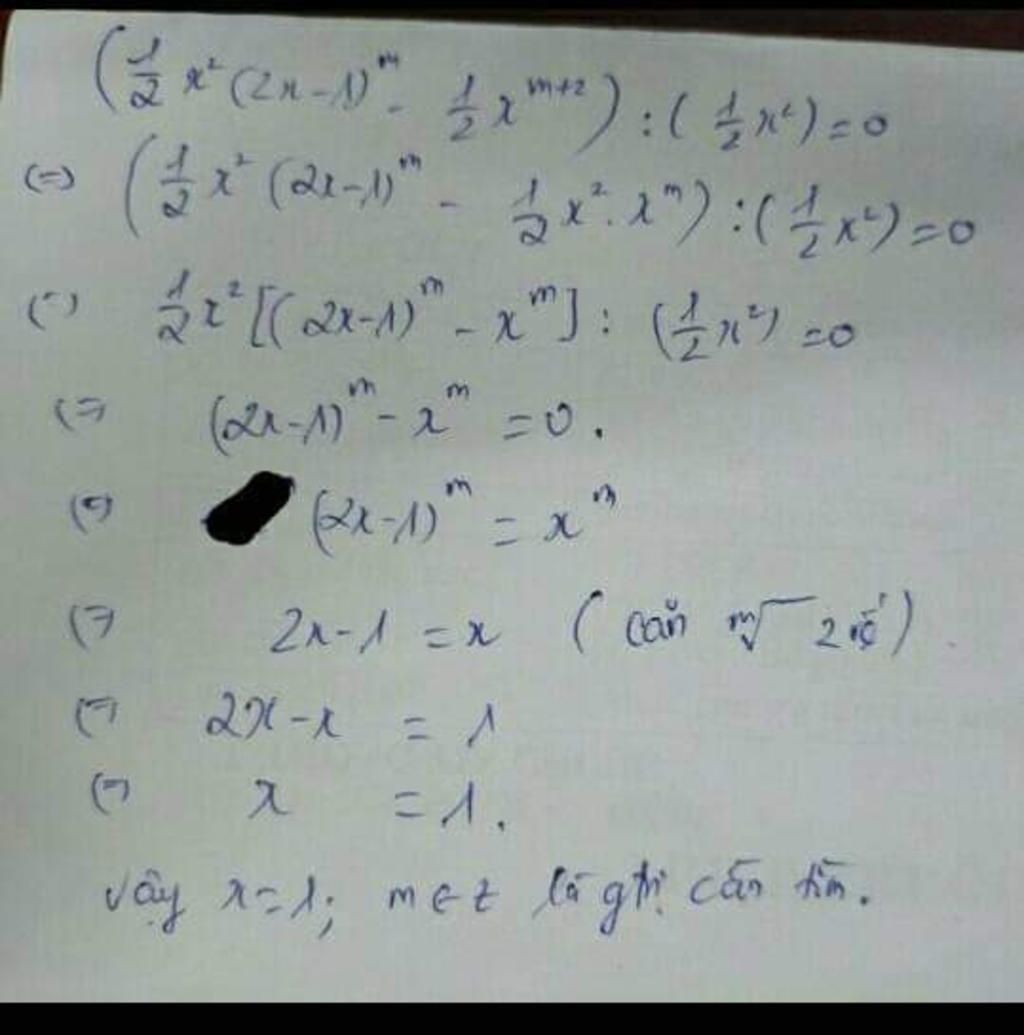 (1/2 x²(2x-1)^m - 1/2 x^(m+2)) : (1/2 x²) = 0
(=) (1/2 x² (2x-1)^m - 1/2 x² . x^m) : (1/2 x²) = 0
(=) 1/2 x² [(2x-1)^m - x^m] : (1/2 x²) = 0
(=) (2x-1)^m - x^m = 0 .
(=) (2x-1)^m = x^m
(=) 2x-1 = x ( căn ᵐ√ 2 vế ) .
(=) 2x-x = 1
(=) x = 1 .
vậy x=1; m ∈ z là gtrị cần tìm .